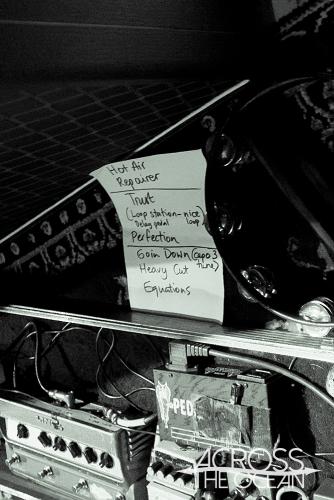 Hot Air
Repairer
Trust
(Loop station - nice
Delay pedal loop)
Perfection
Goin Down (capo 3
tune)
Heavy Cut
Equations
-PED
ACROSS
THE OCEAN